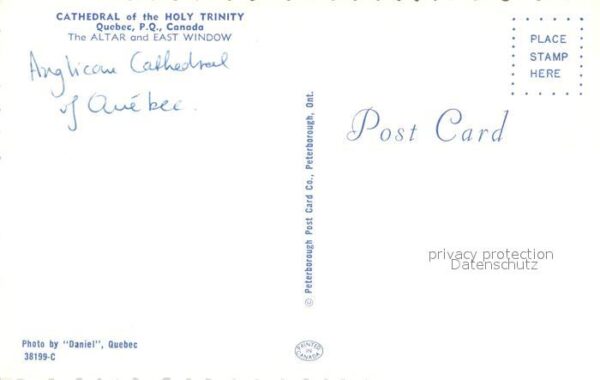 CATHEDRAL of the HOLY TRINITY
Quebec, P.Q., Canada
The ALTAR and EAST WINDOW
Anglican Cathedral
of Québec.
PLACE
STAMP
HERE
Post Card
© Peterborough Post Card Co., Peterborough, Ont.
privacy protection
Datenschutz
Photo by "Daniel", Quebec
38199-C
PRINTED
IN
CANADA